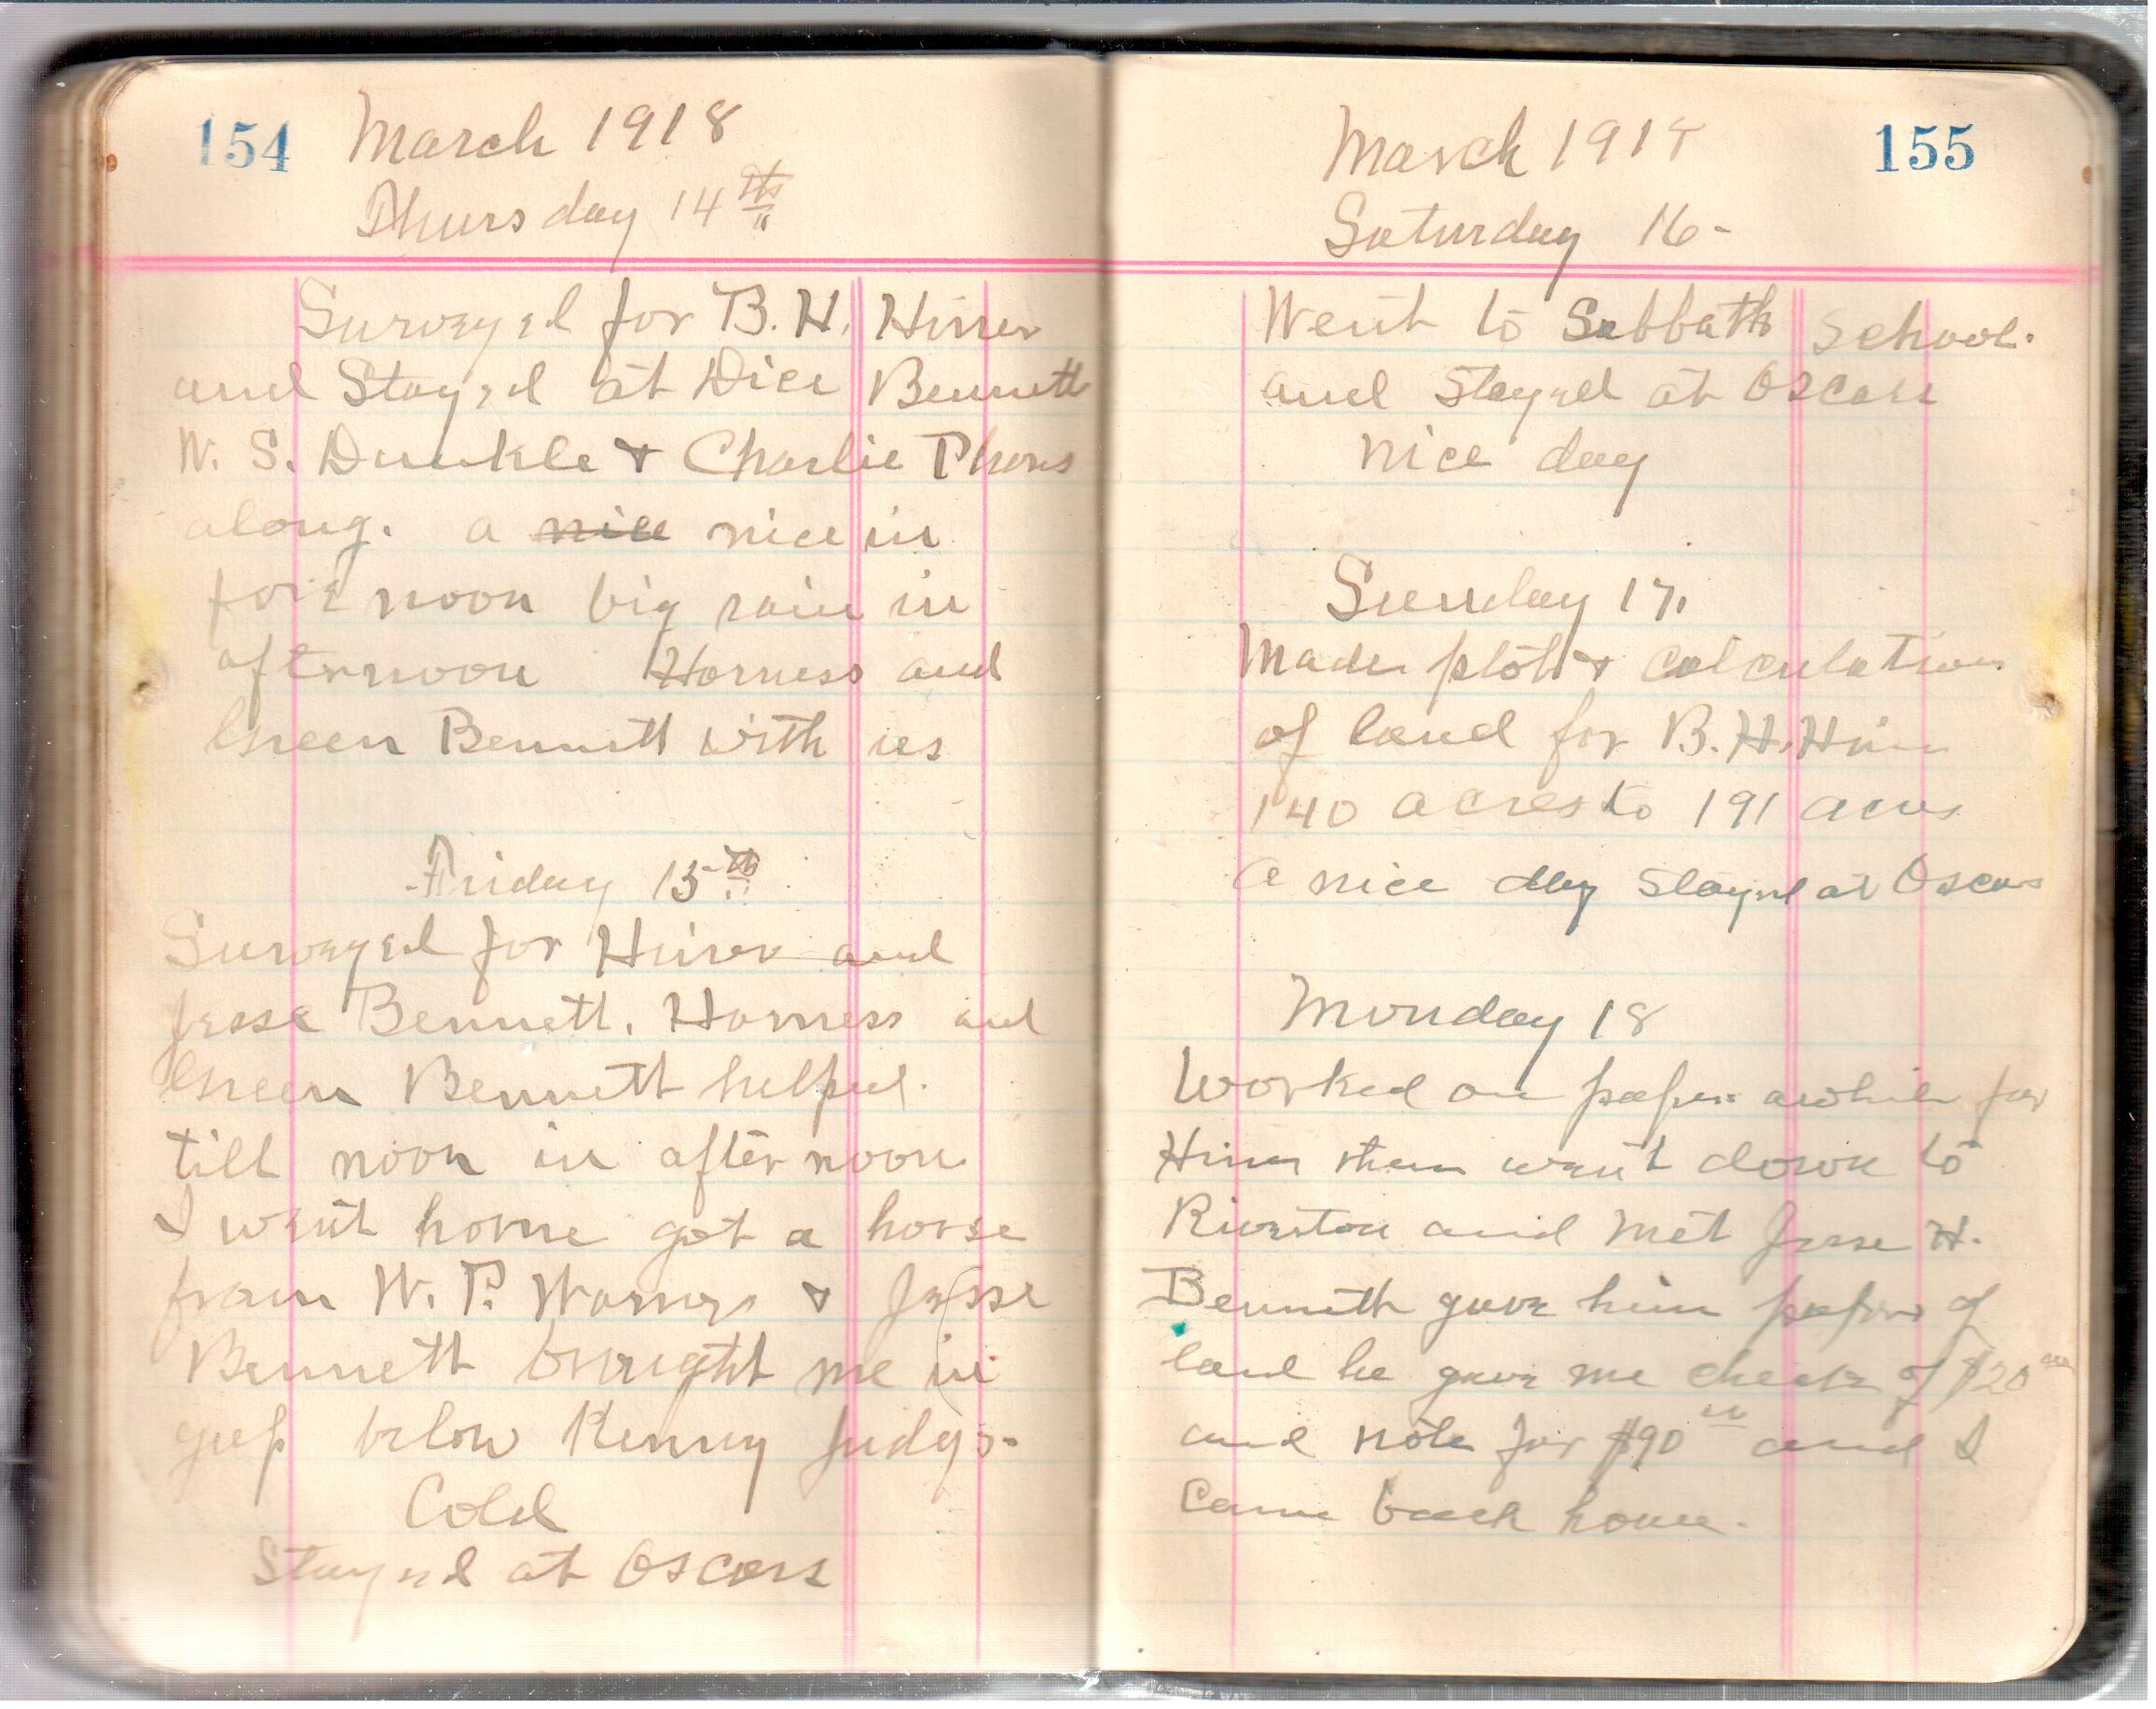 154
March 1918
Thursday 14th
Surveyed for B. H. Hiner
and Stayed at Dice Bennett
W. S. Dunkle & Charlie Phares
along. a nice nice in
fore noon big rain in
afternoon Harness and
Green Bennett with us
Friday 15th
Surveyed for Hiner and
Jesse Bennett. Harness and
Green Bennett helped.
till noon in after noon
I went home got a horse
from W. P. & Jesse
Bennett brought me in
below Kenny Judys.
Cold
Stayed at Oscars
155
March 1918
Saturday 16-
Went to Sabbath School.
and Stayed at Oscars
nice day
Sunday 17.
Made plot & calculation
of land for B. H. Hiner
140 acres to 191 acres
a nice day Stayed at Oscars
Monday 18
Worked on papers awhile for
Hiner then went down to
Riverton and met Jesse H.
Bennett gave him papers of
land he gave me check of $20
and note for $90 and I
came back home.